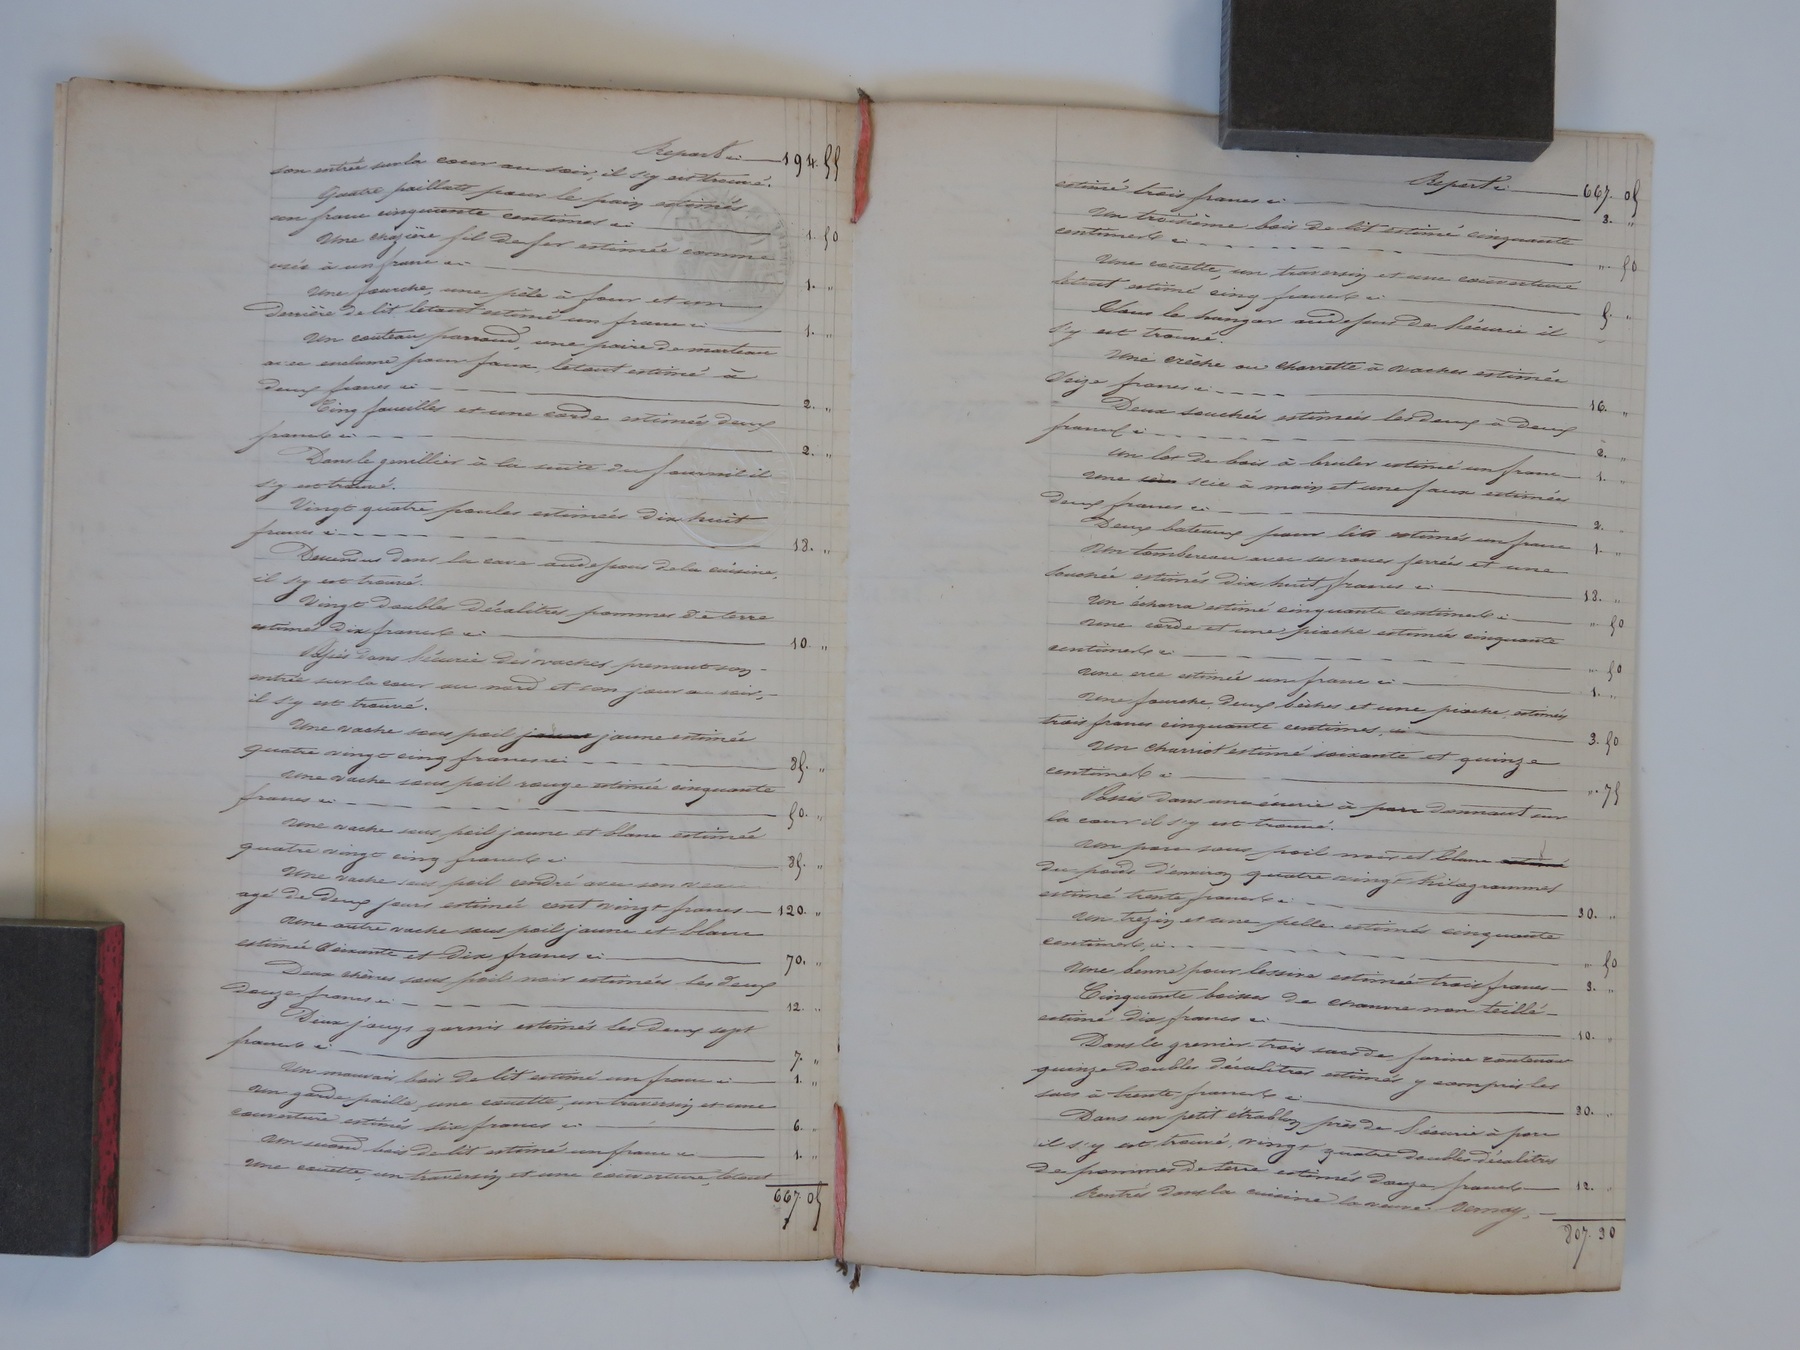 Report ci 194. 55
son entrée sur la cour au soir, il s'y est trouvé.
Quatre paillats pour le pain estimés
un franc cinquante centimes ci 1. 50
Une chazière fil de fer estimée comme
usée à un franc ci 1. "
Une fourche, une pêle à four et un
derrière de lit letout estimé un franc ci 1. "
Un couteau parroud, une paire de marteau
avec enclume pour faux, letout estimé à
deux francs ci 2. "
Cinq faucilles et une corde estimés deux
francs ci 2. "
Dans le genillier à la suite du fournil il
s'y est trouvé.
Vingt quatre poules estimées dix huit
francs ci 18. "
Descendus dans la cave audessous de la cuisine,
il s'y est trouvé.
Vingt doubles décalitres pommes de terre
estimés dix francs ci 10 "
Passés dans l'écurie des vaches prenant son
entrée sur la cour au nord et son jour au soir,
il s'y est trouvé.
Une vache sous poil jaune jaune estimée
quatre vingt cinq francs ci 85. "
Une vache sous poil rouge estimée cinquante
francs ci 50. "
Une vache sous poil jaune et blanc estimée
quatre vingt cinq francs ci 85. "
Une vache sous poil cendré avec son veau
agé de deux jours estimée cent vingt francs 120. "
Une autre vache sous poil jaune et blanc
estimée soixante et dix francs ci 70. "
Deux chèvres sous poil noir estimées les deux
douze francs ci 12. "
Deux jougs garnis estimés les deux sept
francs ci 7. "
Un mauvais bois de lit estimé un franc ci 1. "
Un garde paille, une couette, un traversin et une
couverture estimés six francs ci 6. "
Un second bois de lit estimé un franc ci 1. "
Une couette, un traversin et une couverture, letout
667. 05
Report ci 667. 05
estimé trois francs ci 3. "
Un troisième bois de lit estimé cinquante
centimes ci ". 50
Une couette, un traversin et une couverture
letout estimé cinq francs ci 5. "
Dans le hangar audessus de l'écurie il
s'y est trouvé.
Une crèche ou charrette à vaches estimée
seize francs ci 16. "
Deux souchées estimées les deux à deux
francs ci 2. "
Un lot de bois à bruler estimé un franc 1. "
Une scie à main et une faux estimées
deux francs ci 2.
Deux bateaux pour lits estimés un franc 1. "
Un tombereau avec ses roues ferrées et une
souchée estimés dix huit francs ci 18. "
Un écharra estimé cinquante centimes ci " 50
Une corde et une pioche estimées cinquante
centimes ci ". 50
Une erce estimée un franc ci 1. "
Une fourche, deux bêches et une pioche, estimés
trois francs cinquante centimes, ci 3. 50
Un charriot estimé soixante et quinze
centimes ci ". 75
Passés dans une écurie à porc donnant sur
la cour il s'y est trouvé.
Un porc sous poil noir et blanc estimé
du poids d'environ quatre vingt kilogrammes
estimé trente francs ci 30. "
Un trézin et une pelle estimés cinquante
centimes, ci ". 50
Une benne pour lessive estimée trois francs 3. "
Cinquante boisses de chanvre non teillé
estimé dix francs ci 10. "
Dans le grenier trois sacs de farine contenan
quinze doubles décalitres estimés y compris les
sacs à trente francs ci 30. "
Dans un petit établon près de l'écurie à porc
il s'y est trouvé, vingt quatre doubles décalitres
de pommes de terre estimés douze francs 12. "
Rentrés dans la cuisine la veuve
807. 30